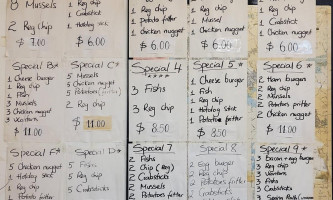 8 Mussels
2 Reg Chip
$ 7.00
1 Reg chip
1 Crabstick
1 Hotdog
$ 6.00
1 Reg chip
1 Potato fritter
1 Chicken nugget
$ 6.00
1 Reg Chip
1 Mussel
1 Chicken nugget
$ 6.00
1 Crabstick
1 Chicken nugget
$ 6.00
Special B*
1 Cheese burger
1 Reg Chip
1 Fish
3 Mussels
3 Chicken nugget
3 Wonton
$ 11.00
Special C*
5 Mussels
5 Chicken nugget
1 Reg chip
$ 11.00
Special 4
****
3 Fishs
3 Reg chip
$ 8.50
Special 5*
1 Cheese burger
1 Fish
1 Reg chip
1 Hotdog Stick
1 Potatoes fritter
$ 8.50
Special 6
*
2 Ham burger
2 Reg Chip
2 Potatoes fritter
2 Chicken nugget
$ 11.00
Special F*
5 Chicken nugget
1 Hotdog Stick
1 Reg chip
Special D*
5 Fishs
5 Reg chip
5 Crabsticks
Special 7
2 Fishs
2 Chip (Reg)
2 Crabsticks
2 Mussels
2 Potatoes fritter
Special 8
2 Egg burger
2 Reg Chip
2 Crabsticks
Special 9*
3 Bacon + egg burger
3 Reg Chip
3 Wontons
3 Fishs
3 Crabsticks